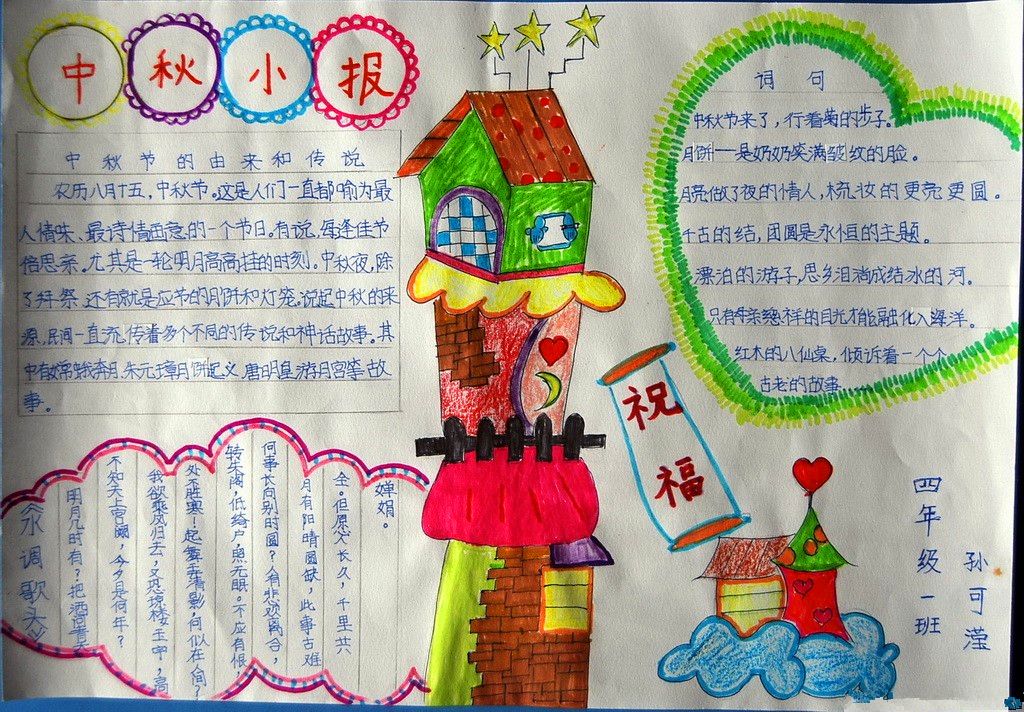 中秋小报
中秋节的由来和传说
农历八月十五，中秋节。这是人们一直都喻为最
人情味、最诗情画意的一个节日。有说，每逢佳节
倍思亲。尤其是一轮明月高高挂的时刻。中秋夜，除
了拜祭，还有就是应节的月饼和灯笼。说起中秋的来
源，民间一直流传着多个不同的传说和神话故事。其
中有嫦娥奔月，朱元璋月饼起义，唐明皇游月宫等故
事。
词句
中秋节来了，行着菊的步子。
月饼——是奶奶笑满皱纹的脸。
月亮做了夜的情人，梳妆的更亮更圆。
千古的结，团圆是永恒的主题。
漂泊的游子，思乡泪淌成结冰的河。
只有母亲慈祥的目光才能融化入海洋。
红木的八仙桌，倾诉着一个个
古老的故事
祝福
水调歌头
明月几时有？把酒问青天
不知天上宫阙，今夕是何年？
我欲乘风归去，又恐琼楼玉宇，高
处不胜寒！起舞弄清影，何似在人间？
转朱阁，低绮户，照无眠。不应有恨
何事长向别时圆？人有悲欢离合，
月有阳晴圆缺，此事古难
全。但愿人长久，千里共
婵娟。
四年级一班
孙可滢